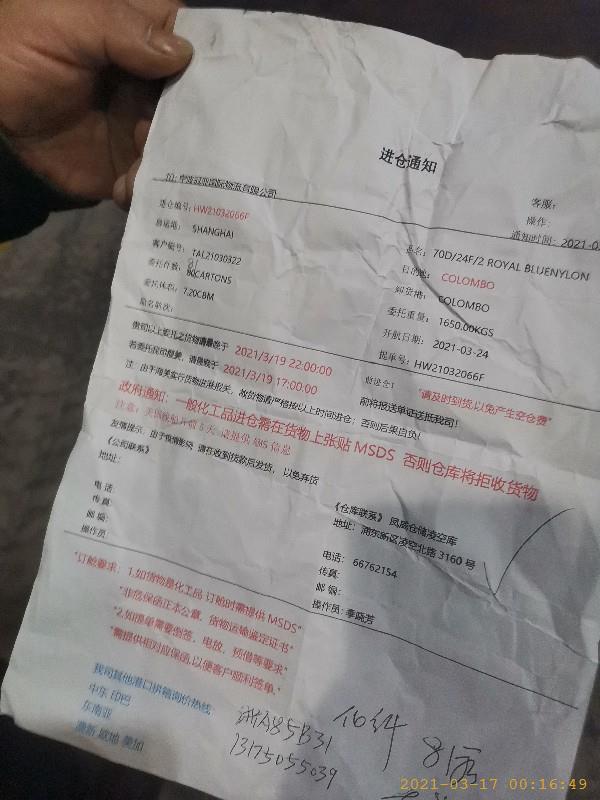 进仓通知
客服：
操作：
通知时间：2021-0
宁波冠亚国际物流有限公司
进仓编号：HW21032066F
品名：70D/24F/2 ROYAL BLUENYLON
启运港：SHANGHAI
目的地：COLOMBO
客户编号：TAL21030322
卸货港：COLOMBO
81
委托件数：80CARTONS
委托重量：1650.00KGS
委托体积：7.20CBM
开航日期：2021-03-24
船名航次：
提单号：HW21032066F
贵司以上委托之货物请最晚于 2021/3/19 22:00:00
"请及时到货,以免产生空仓费"
若委托我司报关，请最晚于 2021/3/19 17:00:00 前将报送单证送抵我司！
注：由于海关实行货物进珠报关，故货物请严格按以上时间进仓；否则后果自负！
政府通知：一般化工品进仓需在货物上张贴 MSDS 否则仓库将拒收货物
注意：美国线船开前 5 天 请提供 AMS 信息
友情提示，由于疫情影响，请在收到货款后发货，以免弃货
《公司联系》
地址：
电话：
传真：
邮编：
操作员：
《仓库联系》凤威仓储凌空库
地址：浦东新区凌空北路 3160 号
电话：66762154
传真：
邮编：
操作员：季晓芳
"订舱要求：1.如货物是化工品 订舱时需提供 MSDS"
"非危保函正本公章，货物运输鉴定证书"
"2.如提单需要倒签，电放，预借等要求"
"需提供相对应保函,以便客户顺利签单."
我司其他港口拼箱询价热线
中东 印巴
东南亚
澳新 欧地 美加
浙A85B31
13175055039
件
2021-03-17 00:16:49